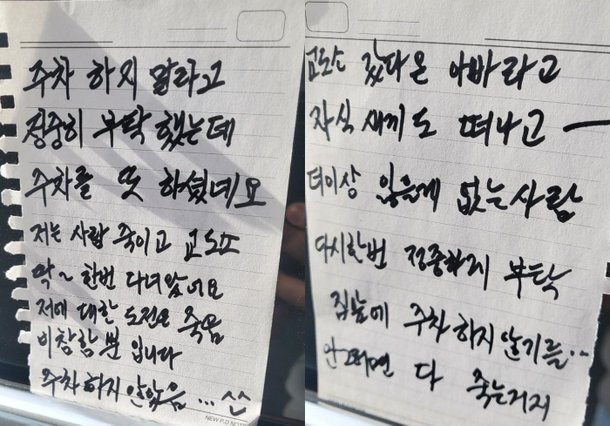 주차 하지 말라고
정중히 부탁했는데
주차를 또 하셨네요
저는 사람 죽이고 교도소
막~ 한번 다녀왔어요
저에 대한 도전은 죽음
이참함 뿐 입니다
주차하지 안았음... ^^
교도소 갔다온 아빠라고
자식 새끼도 떠나고 —
더이상 잃을게 없는 사람
다시한번 정중하게 부탁
집앞에 주차하지 않기를..
안그러면 다 죽는거지